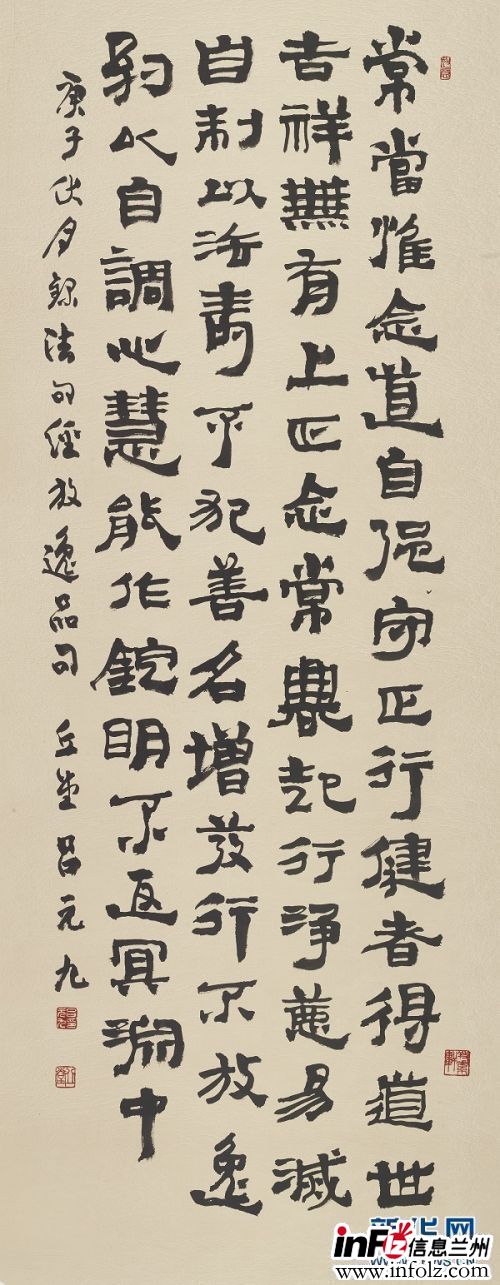 常當惟念道自强守正行健者得道世
吉祥無有上正念常興起行淨惡易滅
自制以法壽不犯善名增發行不放逸
約以自調心慧能作錠明不返冥淵中
庚子伏月録法句經放逸品句 丘堂呂元九
新华网
信息兰州
www.infolz.com